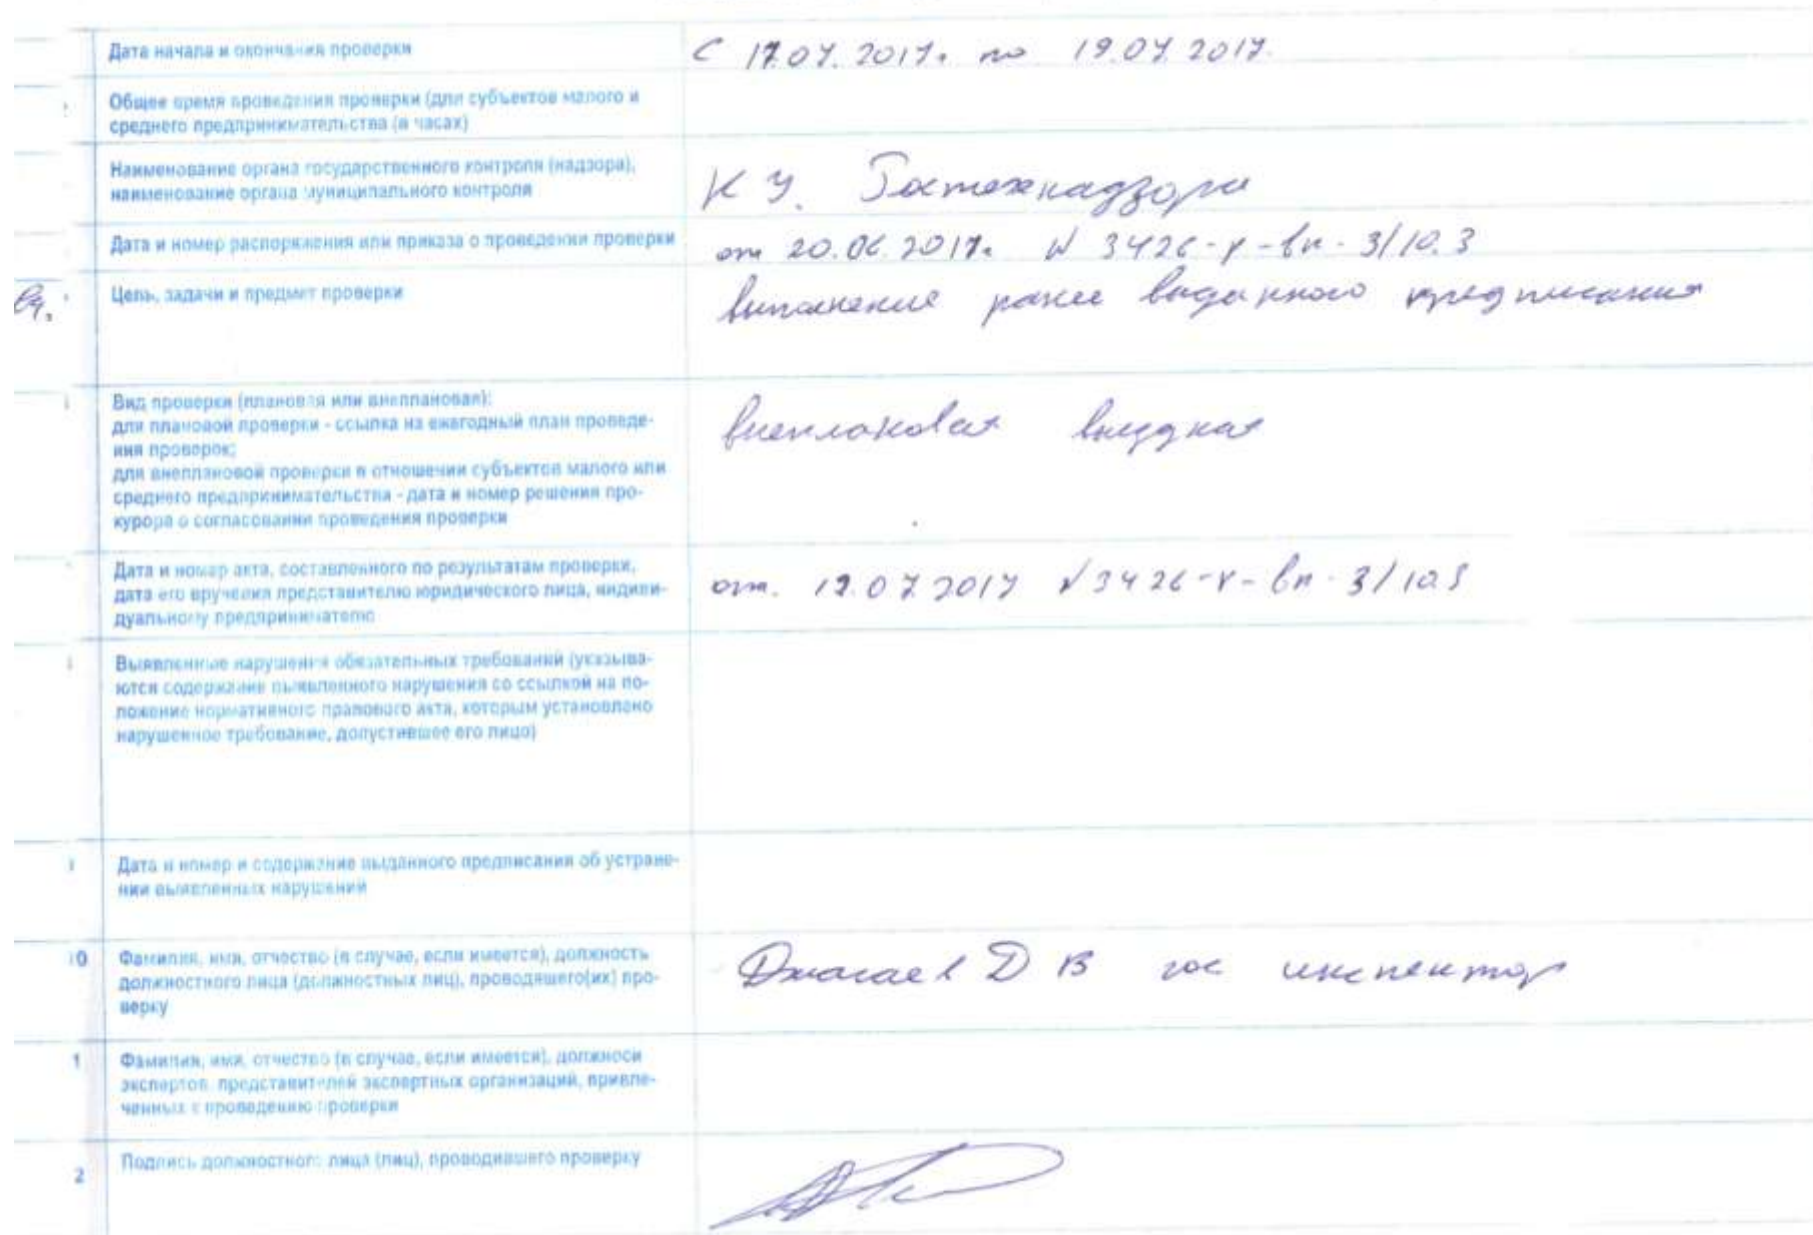 Дата начала и окончания проверки
С 17.07.2017. по 19.07.2017.
Общее время проведения проверки (для субъектов малого и
среднего предпринимательства (в часах)
Наименование органа государственного контроля (надзора),
наименование органа муниципального контроля
К У. Гостехнадзора
Дата и номер распоряжения или приказа о проведении проверки
от 20.06.2017. № 3426-р-вп-3/10.3
Цель, задачи и предмет проверки
выполнение ранее выданного предписания
Вид проверки (плановая или внеплановая):
для плановой проверки - ссылка на ежегодный план проведе-
ния проверок;
для внеплановой проверки в отношении субъектов малого или
среднего предпринимательства - дата и номер решения про-
курора о согласовании проведения проверки
внеплановая выездная
Дата и номер акта, составленного по результатам проверки,
дата его вручения представителю юридического лица, индиви-
дуальному предпринимателю
от. 19.07.2017 № 3426-р-вп-3/10.3
Выявленные нарушения обязательных требований (указыва-
ются содержание выявленного нарушения со ссылкой на по-
ложение нормативного правового акта, которым установлено
нарушенное требование, допустившее его лицо)
Дата и номер и содержание выданного предписания об устране-
нии выявленных нарушений
10
Фамилия, имя, отчество (в случае, если имеется), должность
должностного лица (должностных лиц), проводящего(их) про-
верку
Д В гос инспектор
1
Фамилия, имя, отчество (в случае, если имеется), должноси
экспертов, представителей экспертных организаций, привле-
ченных к проведению проверки
2
Подпись должностного лица (лиц), проводившего проверку